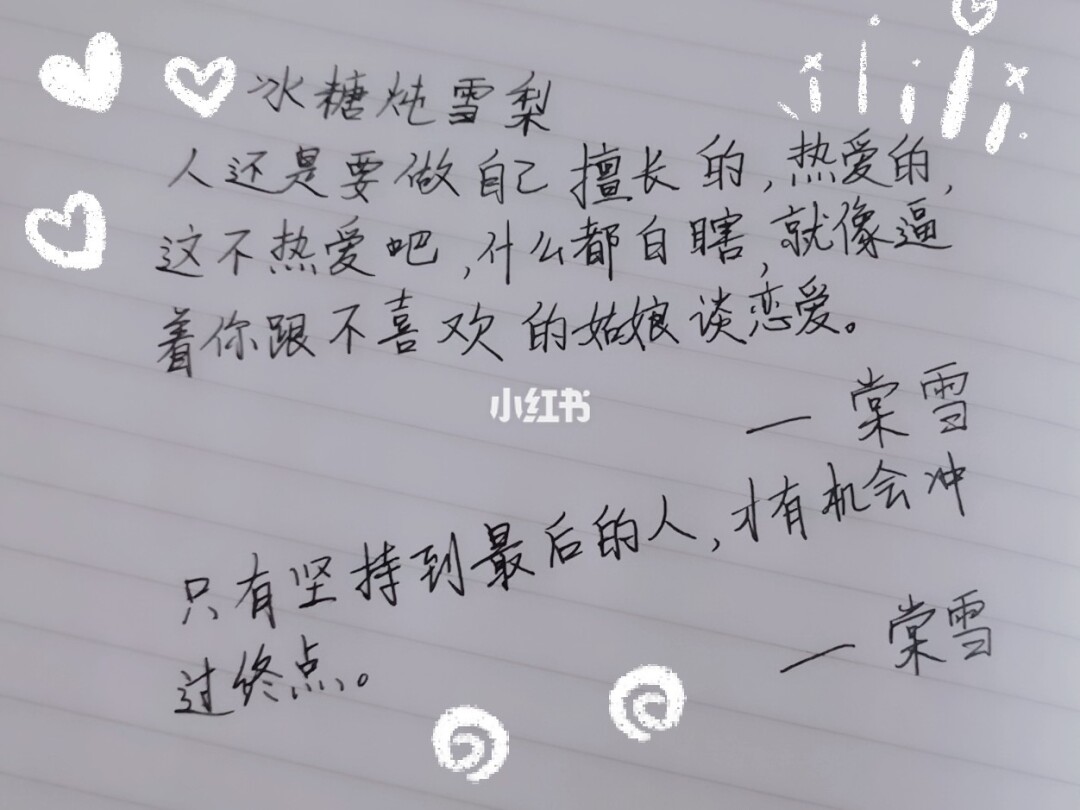 冰糖炖雪梨
人还是要做自己擅长的,热爱的,
这不热爱吧,什么都白瞎,就像逼
着你跟不喜欢的姑娘谈恋爱。
— 棠雪
小红书
只有坚持到最后的人,才有机会冲
过终点。
— 棠雪